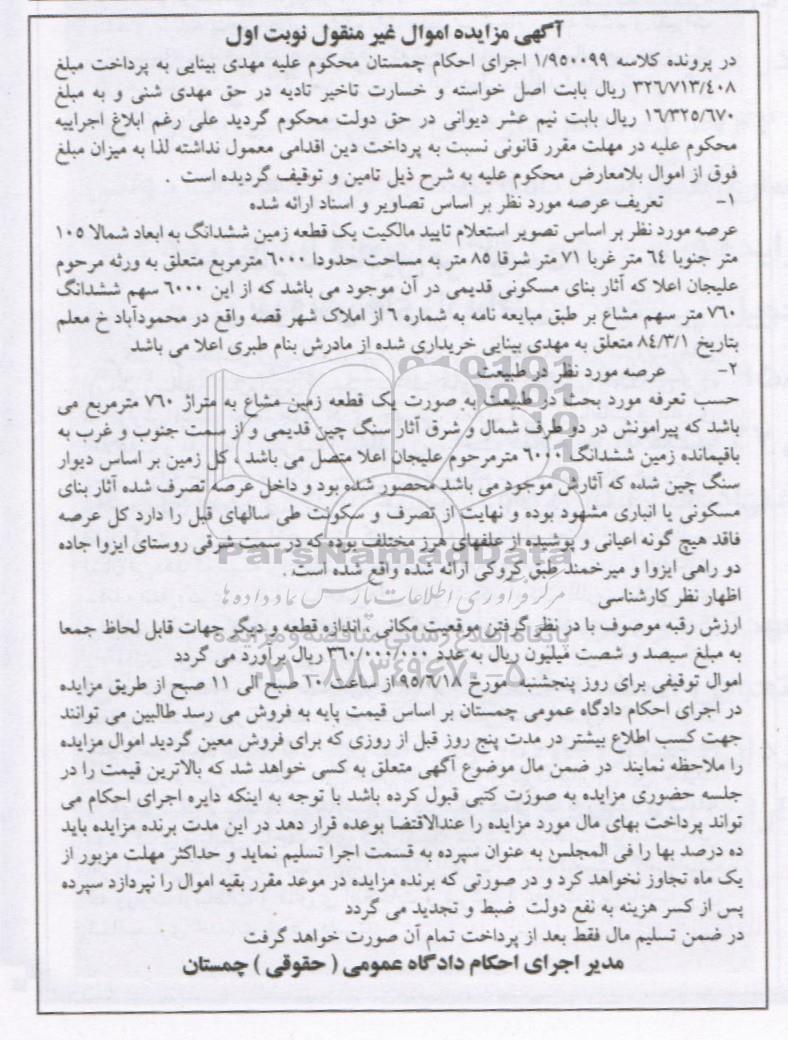 آگهی مزایده اموال غیر منقول نوبت اول
در پرونده کلاسه ۱/۹۵۰۰۹۹ اجرای احکام چمستان محکوم علیه مهدی بینایی به پرداخت مبلغ
۳۲۶/۷۱۳/۴۰۸ ریال بابت اصل خواسته و خسارت تاخیر تادیه در حق مهدی شنی و به مبلغ
۱۶/۳۲۵/۶۷۰ ریال بابت نیم عشر دیوانی در حق دولت محکوم گردید علی رغم ابلاغ اجراییه
محکوم علیه در مهلت مقرر قانونی نسبت به پرداخت دین اقدامی معمول نداشته لذا به میزان مبلغ
فوق از اموال بلامعارض محکوم علیه به شرح ذیل تامین و توقیف گردیده است .
۱- تعریف عرصه مورد نظر بر اساس تصاویر و اسناد ارائه شده
عرصه مورد نظر بر اساس تصویر استعلام تایید مالکیت یک قطعه زمین ششدانگ به ابعاد شمالا ۱۰۵
متر جنوبا ۶۴ متر غربا ۷۱ متر شرقا ۸۵ متربه مساحت حدودا ۶۰۰۰ مترمربع متعلق به ورثه مرحوم
علیجان اعلا که آثار بنای مسکونی قدیمی در آن موجود می باشد که از این ۶۰۰۰ سهم ششدانگ
۷۶۰ متر سهم مشاع بر طبق مبایعه نامه به شماره ۶ از املاک شهر قصه واقع در محمودآباد خ معلم
بتاریخ ۸۴/۳/۱ متعلق به مهدی بینایی خریداری شده از مادرش بنام طبری اعلا می باشد
۲- عرصه مورد نظر در طبیعت
حسب تعرفه مورد بحث در طبیعت به صورت یک قطعه زمین مشاع به متراژ ۷۶۰ مترمربع می
باشد که پیرامونش در دو طرف شمال و شرق آثار سنگ چین قدیمی و از سمت جنوب و غرب به
باقیمانده زمین ششدانگ ۶۰۰۰ مترمرحوم علیجان اعلا متصل می باشد . کل زمین بر اساس دیوار
سنگ چین شده که آثارش موجود می باشد محصور شده بود و داخل عرصه تصرف شده آثار بنای
مسکونی یا انباری مشهود بوده و نهایت از تصرف و سکونت طی سالهای قبل را دارد کل عرصه
فاقد هیچ گونه اعیانی و پوشیده از علفهای هرز مختلف بوده که در سمت شرقی روستای ایزوا جاده
دو راهی ایزوا و میرخمند طبق کروکی ارائه شده واقع شده است .
اظهار نظر کارشناسی
ارزش رقبه موصوف با در نظر گرفتن موقعیت مکانی ، اندازه قطعه و دیگر جهات قابل لحاظ جمعا
به مبلغ سیصد و شصت میلیون ریال به عدد ۳۶۰/۰۰۰/۰۰۰ ریال برآورد می گردد
اموال توقیفی برای روز پنجشنبه مورخ ۹۵/۶/۱۸ از ساعت ۱۰ صبح الی ۱۱ صبح از طریق مزایده
در اجرای احکام دادگاه عمومی چمستان بر اساس قیمت پایه به فروش می رسد طالبین می توانند
جهت کسب اطلاع بیشتر در مدت پنج روز قبل از روزی که برای فروش معین گردید اموال مزایده
را ملاحظه نمایند در ضمن مال موضوع آگهی متعلق به کسی خواهد شد که بالاترین قیمت را در
جلسه حضوری مزایده به صورت کتبی قبول کرده باشد با توجه به اینکه دایره اجرای احکام می
تواند پرداخت بهای مال مورد مزایده را عندالاقتضا بوعده قرار دهد در این مدت برنده مزایده باید
ده درصد بها را فی المجلس به عنوان سپرده به قسمت اجرا تسلیم نماید و حداکثر مهلت مزبور از
یک ماه تجاوز نخواهد کرد و در صورتی که برنده مزایده در موعد مقرر بقیه اموال را نپردازد سپرده
پس از کسر هزینه به نفع دولت ضبط و تجدید می گردد
در ضمن تسلیم مال فقط بعد از پرداخت تمام آن صورت خواهد گرفت
مدیر اجرای احکام دادگاه عمومی ( حقوقی ) چمستان
ParsNamadData
مرکز فرآوری اطلاعات پارس نماد داده ها
پایگاه اطلاع رسانی مناقصه و مزایده
۰۲۱-۸۸۳۴۹۶۷۰-۵